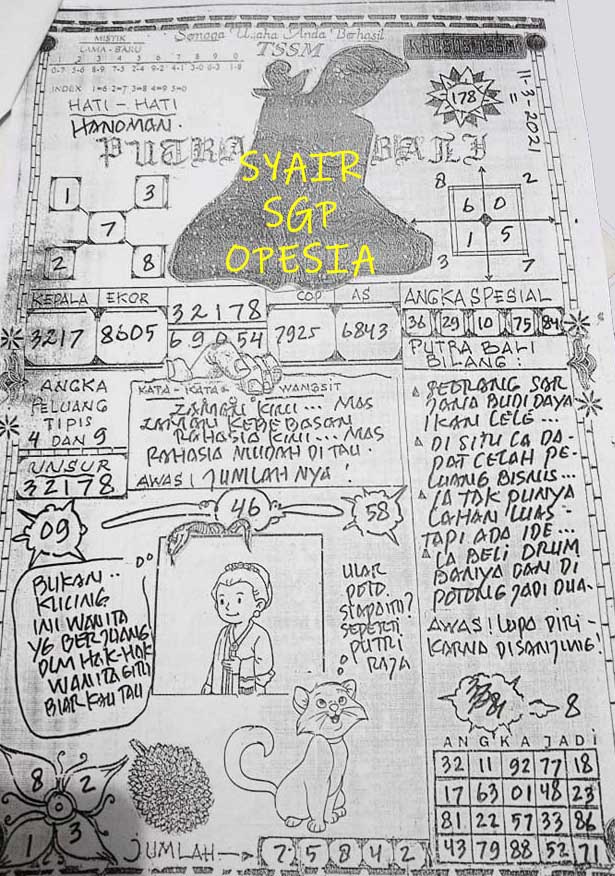 Semoga Usaha Anda Berhasil
TSSM
MISTIK
LAMA - BARU
1 2 3 4 5 6 7 8 9 0
0-7 5-6 8-9 7-5 2-4 9-2 4-1 3-0 6-3 1-8
INDEX 1=6 2=7 3=8 4=9 5=0
KHUSUS TSSM
HATI - HATI
HANOMAN.
178
11-3-2021
PUTRA BALI
SYAIR
SGP
OPESIA
1 3
7
2 8
8 2
6 0
1 5
3 7
KEPALA EKOR 32178 COP AS
3217 8605 69054 7925 6843
ANGKA SPESIAL
36 29 10 75 84
PUTRA BALI
BILANG :
ANGKA
PELUANG
TIPIS
4 DAN 9
UNSUR
32178
KATA - KATA WANGSIT
ZAMAN KINI... MAS
ZAMAN KEBEBASAN
RAHASIA KINI... MAS
RAHASIA MUDAH DI TAU.
AWAS! JUMLAH NYA!
SEORANG SAR
JANA BUDI DAYA
IKAN LELE...
DI SITU IA DA-
PAT CELAH PE-
LUANG BISNIS...
IA TAK PUNYA
LAHAN LUAS-
TAPI ADA IDE...
IA BELI DRUM
BANYA DAN DI
POTONG JADI DUA.
AWAS! LUPA DIRI-
KARNA DISANJUNG!
09
46
58
BUKAN..
KUCING
INI WANITA
YG BERJUANG
DLM HAK-HAK
WANITA GITU
BIAR KAU TAU
ULAR
POTO
SIAPA ITU?
SEPERTI
PUTRI
RAJA
8
8 2
1 3
JUMLAH
7 5 8 4 2
ANGKA JADI
32 11 92 77 18
17 63 01 48 23
81 22 57 33 86
43 79 88 52 71